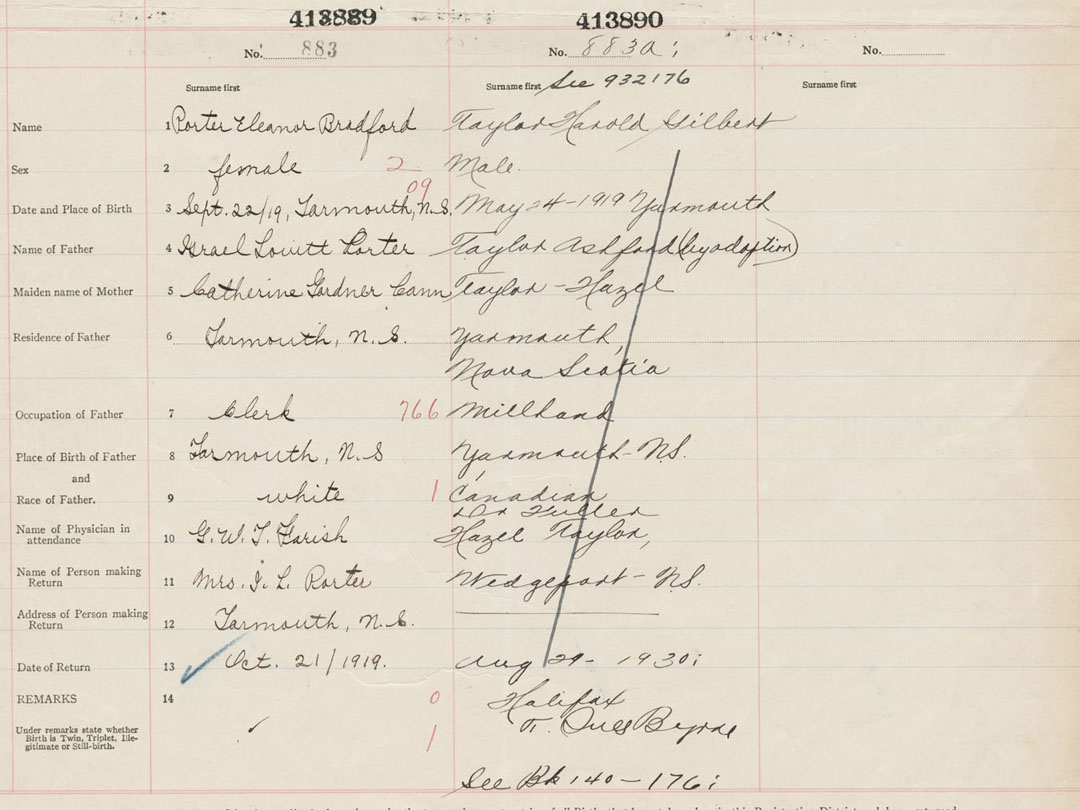 413889 413890
No. 883 No. 883a; No.
Surname first Surname first See 932176 Surname first
Name 1 Porter Eleanor Bradford Taylor Harold Gilbert
Sex 2 female 2 Male.
09
Date and Place of Birth 3 Sept. 22/19, Yarmouth, N.S. May 24-1919 Yarmouth
Name of Father 4 Israel Lovitt Porter Taylor Ashford (by adoption)
Maiden name of Mother 5 Catherine Gardner Cann Taylor - Hazel
Residence of Father 6 Yarmouth, N.S. Yarmouth,
Nova Scotia
Occupation of Father 7 Clerk 766 Millhand
Place of Birth of Father 8 Yarmouth, N.S Yarmouth - N.S.
and
Race of Father. 9 white 1 Canadian
Dr Fuller
Name of Physician in
attendance 10 G.W.T. Farish Hazel Taylor,
Name of Person making
Return 11 Mrs. I. L. Porter Wedgeport - N.S.
Address of Person making
Return 12 Yarmouth, N.S.
Date of Return 13 Oct. 21/1919. Aug 29 - 1930;
REMARKS 14 0 Halifax
Under remarks state whether
Birth is Twin, Triplet, Ille-
gitimate or Still-birth. 1 Byrne
See Bk 140-176;